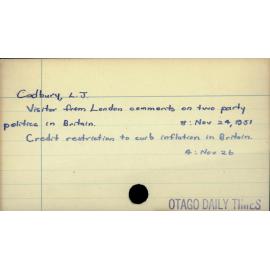 Cadbury, L.J.
Visitor from London comments on two party
politics in Britain. 8: Nov 24, 1951
Credit restriction to curb inflation in Britain.
4: Nov 26
OTAGO DAILY TIMES